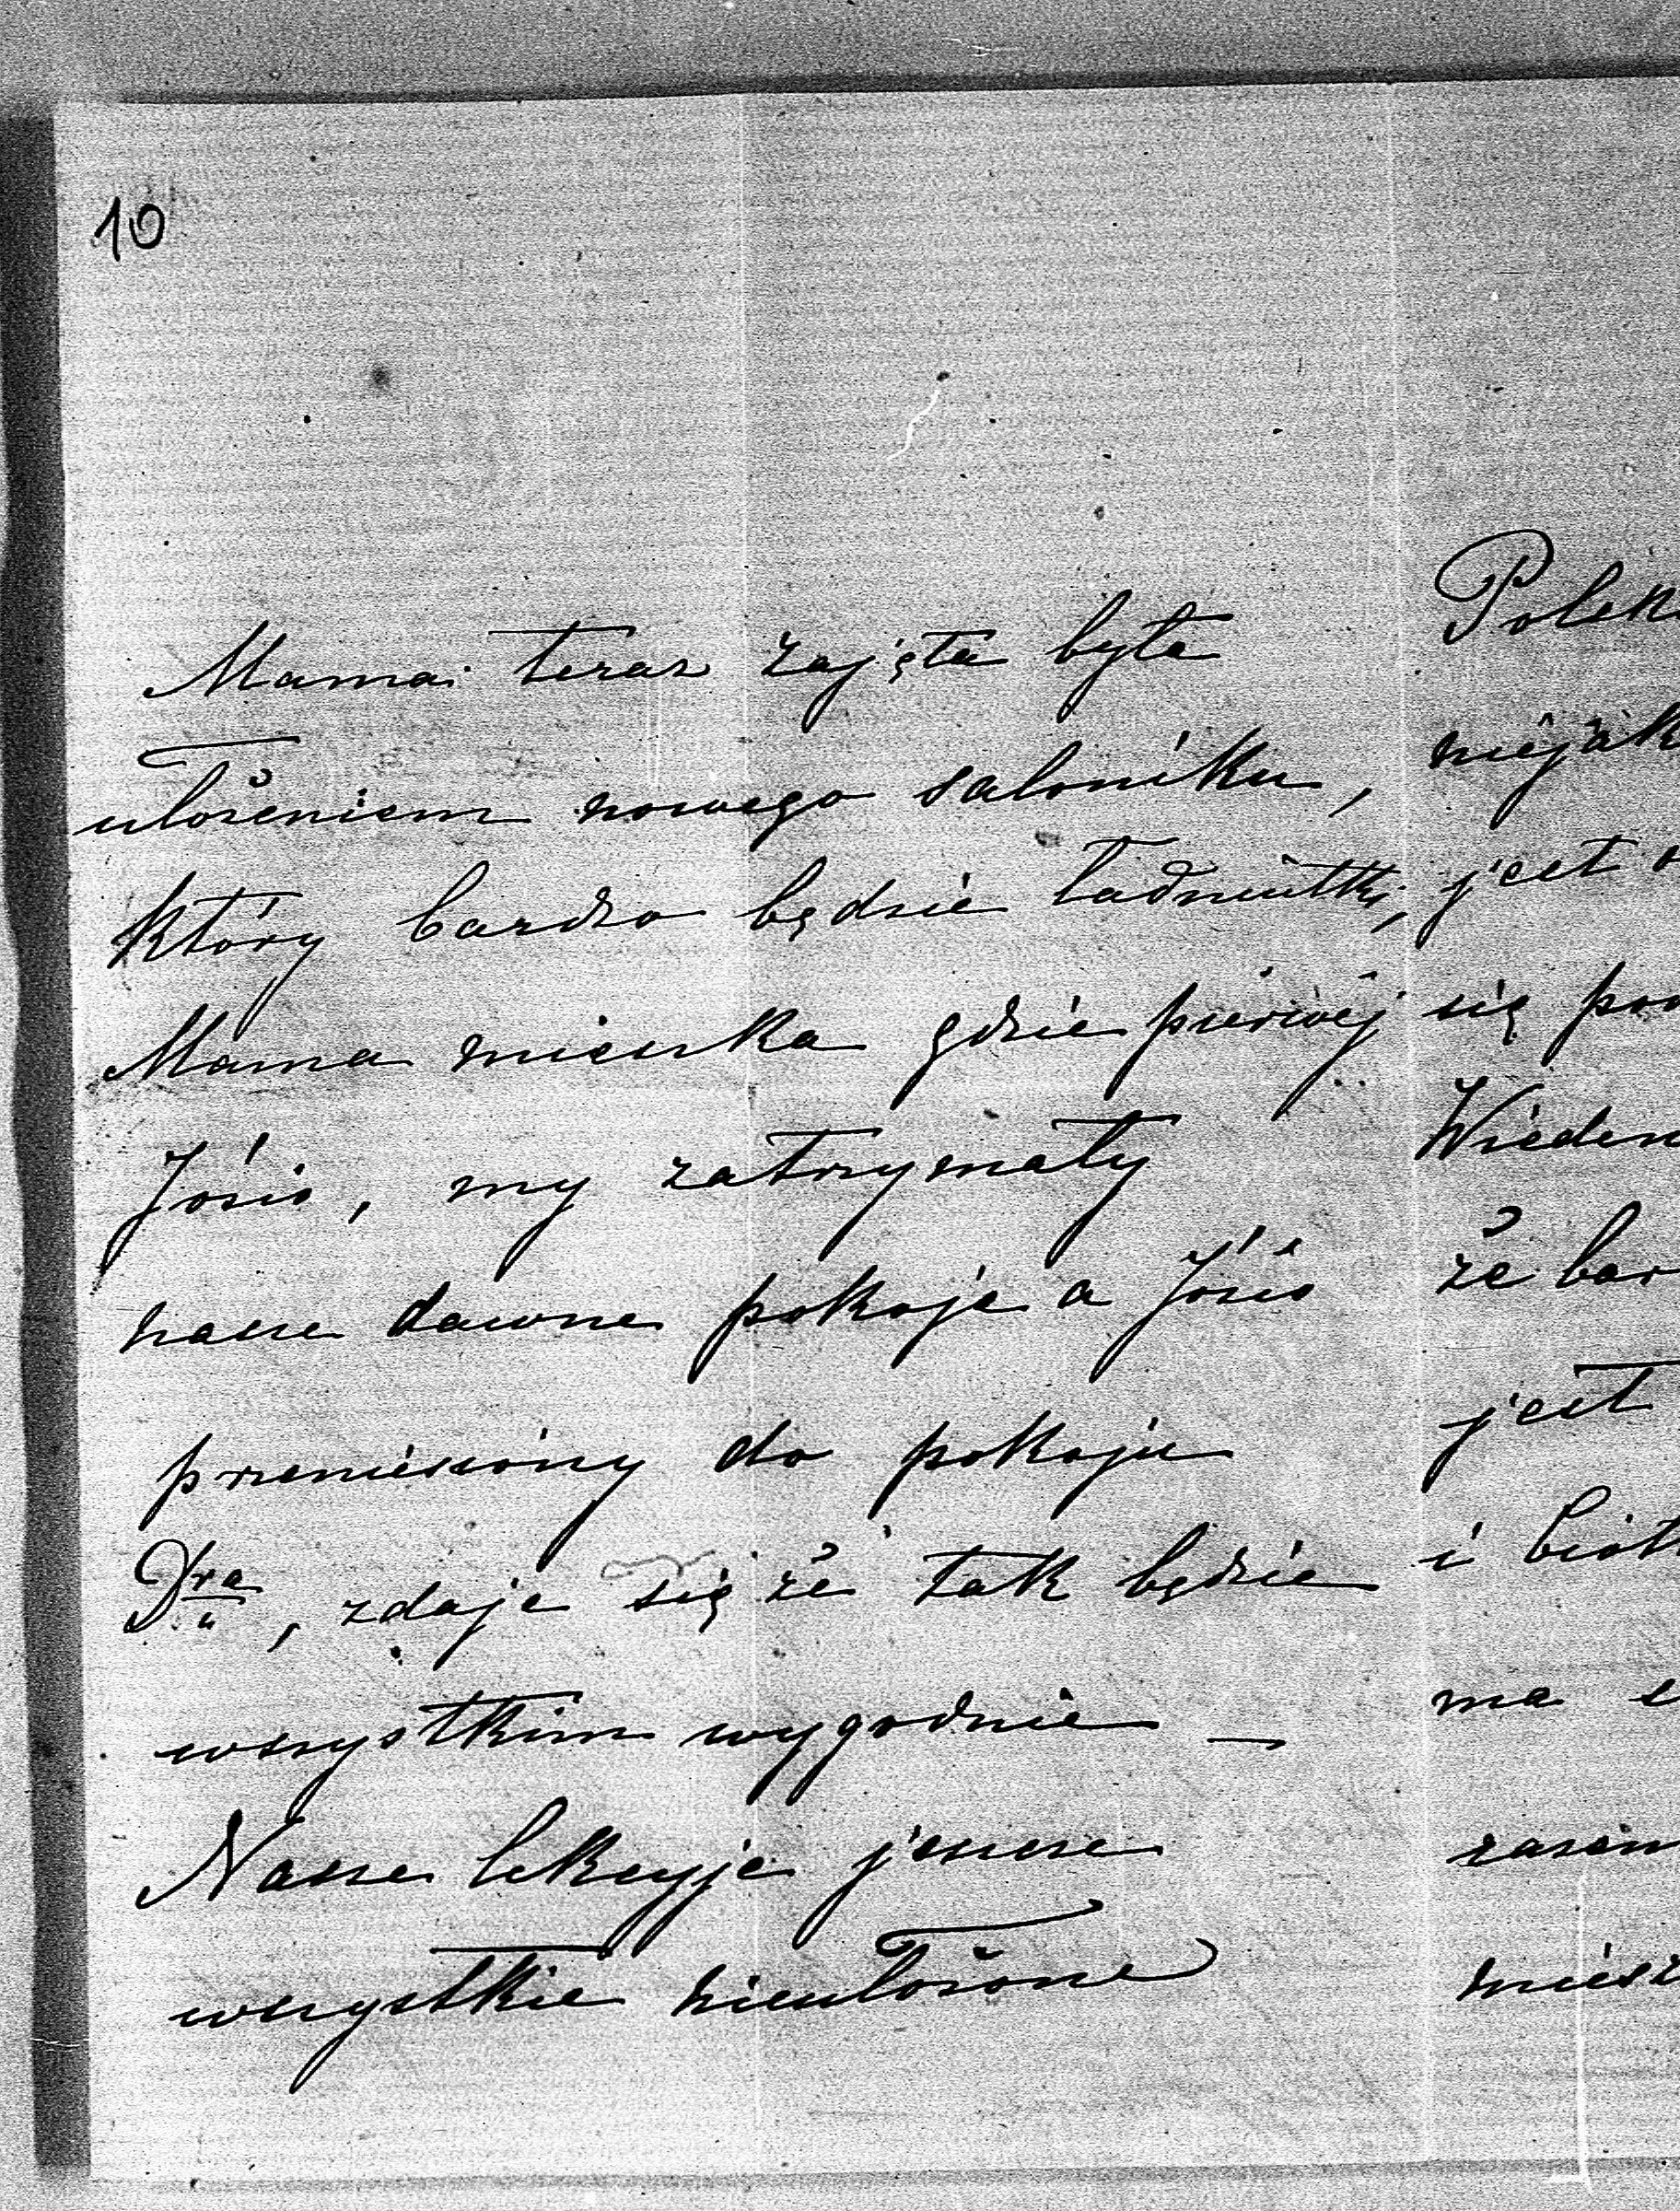 10
Mama teraz zajęta była
ułożeniem nowego saloniku,
który bardzo będzie ładniutki,
Mama mieszka gdzie pierwej
Józio, my zatrzymały
nasze dawne pokoje a Józio
przeniesiony do pokoju
Dra, zdaje się że tak będzie
wszystkim wygodnie —
Nasze lekcyje jeszcze
wszystkie nieułożone
Polsk
niejak
jest
się
Wieden
że bar
jest
i
ma
razem